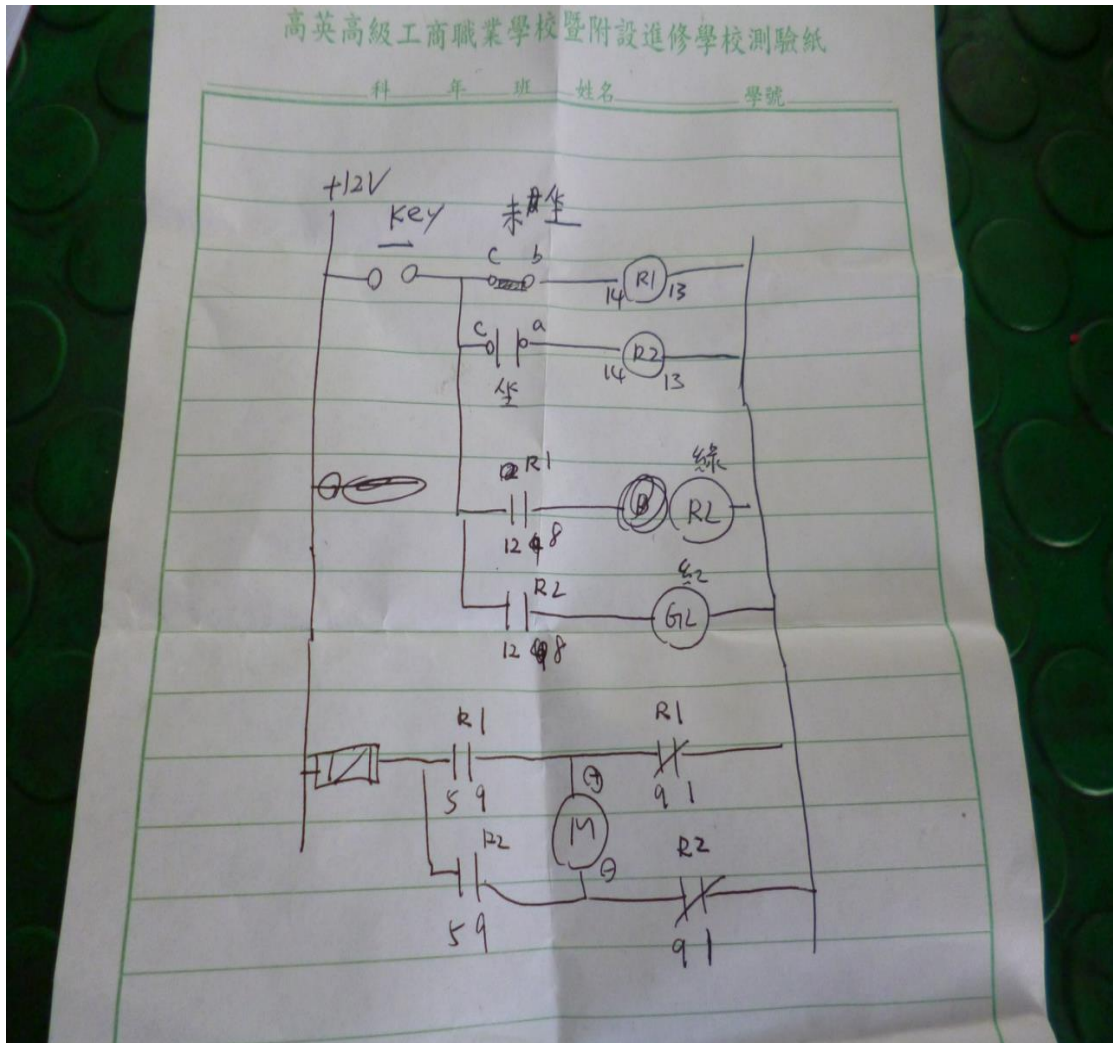 高英高級工商職業學校暨附設進修學校測驗紙
科 年 班 姓名 學號
+12V
Key 未坐
c b
14 R1 13
c a
14 R2 13
坐
R1 綠
RL
12 8
R2 紅
GL
12 8
R1 R1
5 9 ⊕ 9 1
M
R2 ⊖ R2
5 9 9 1